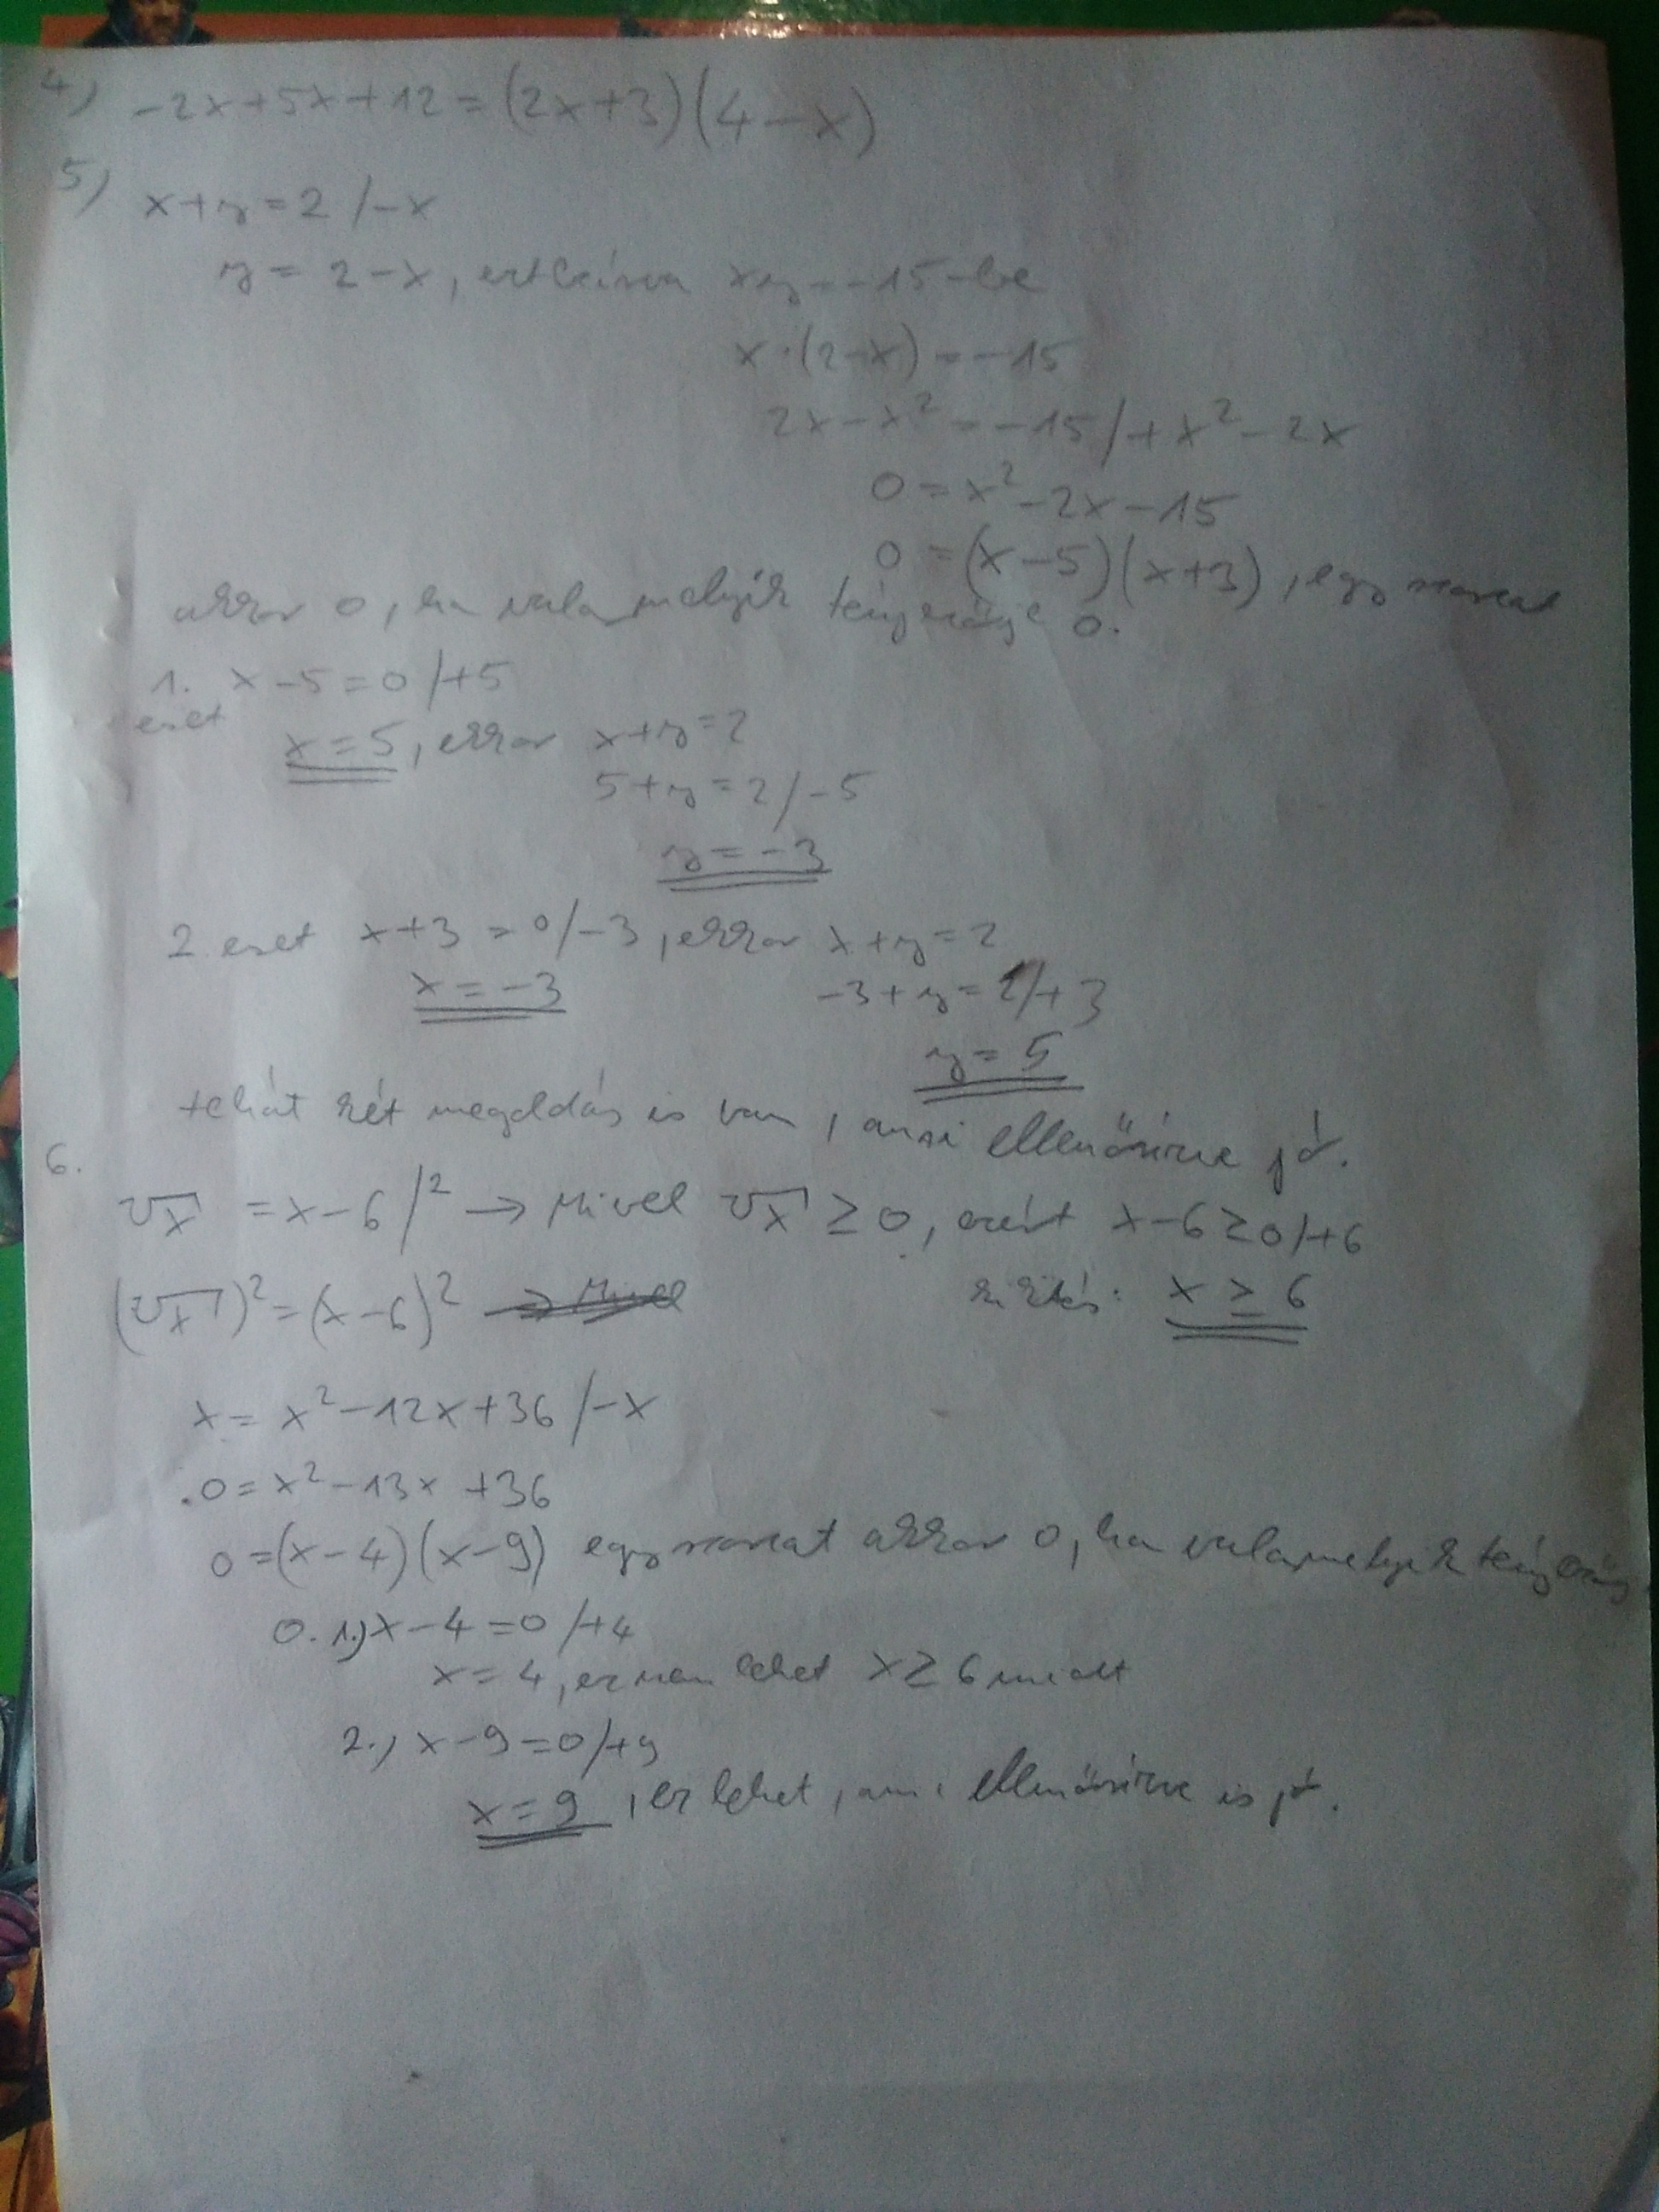 4) -2x+5x+12=(2x+3)(4-x)
5) x+y=2 /-x
y = 2-x, ezt beírva xy=-15-be
x·(2-x)=-15
2x-x²=-15/+x²-2x
0=x²-2x-15
0=(x-5)(x+3), egy szorzat
akkor 0, ha valamelyik tényezője 0.
1. eset x-5=0/+5
x=5, ekkor x+y=2
5+y=2/-5
y=-3
2. eset x+3=0/-3, ekkor x+y=2
x=-3 -3+y=2/+3
y=5
tehát két megoldás is van, ami ellenőrizve jó.
6. √x =x-6/² → Mivel √x ≥0, ezért x-6≥0/+6
(√x)²=(x-6)² → Mivel kikötés: x≥6
x=x²-12x+36/-x
0=x²-13x+36
0=(x-4)(x-9) egy szorzat akkor 0, ha valamelyik tényezője
0. 1.) x-4=0/+4
x=4, ez nem lehet x≥6 miatt
2.) x-9=0/+9
x=9, ez lehet, ami ellenőrizve is jó.